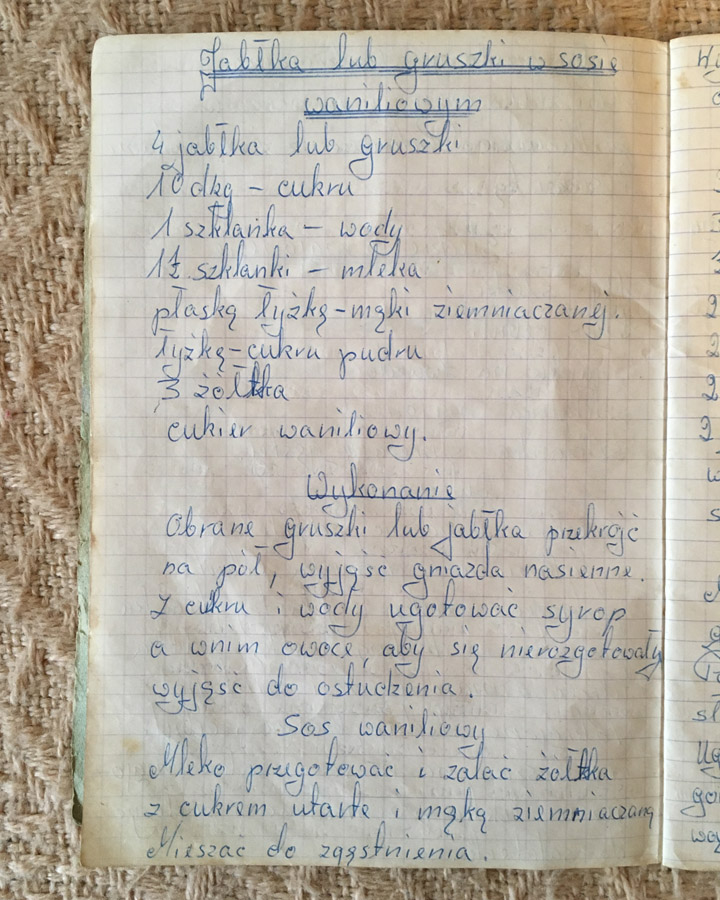 Jabłka lub gruszki w sosie
waniliowym
4 jabłka lub gruszki
10 dkg – cukru
1 szklanka – wody
szklanki – mleka
płaską łyżkę – mąki ziemniaczanej.
łyżkę – cukru pudru
3 żółtka
cukier waniliowy.
Wykonanie
Obrane gruszki lub jabłka przekroić
na pół, wyjąść gniazda nasienne.
Z cukru i wody ugotować syrop
a wnim owoce, aby się nierozgotowały
wyjąść do ostudzenia.
Sos waniliowy
Mleko przegotować i zalać żółtka
z cukrem utarte i mąką ziemniaczaną
Mieszać do zgęstnienia.